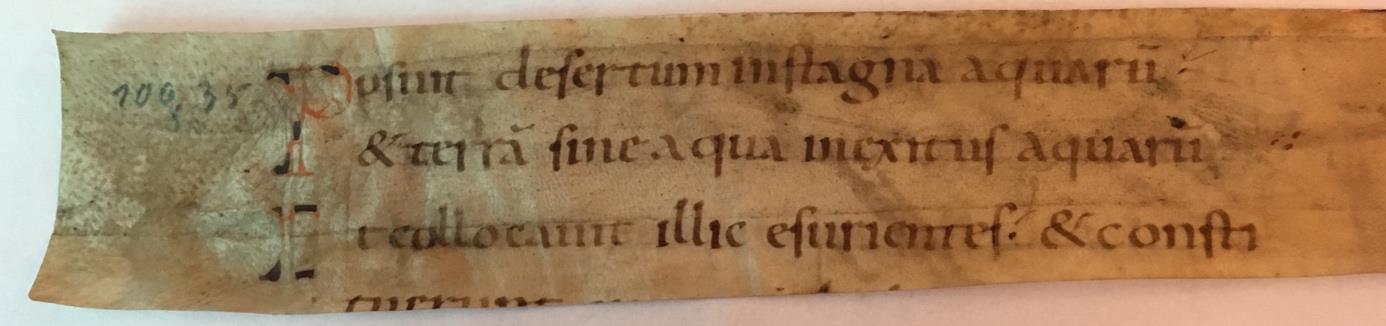 106, 35
Posuit desertum instagna aquarū
& terrā sine aqua inexitus aquarū
Et collocauit illic esurientes· & consti
tuerunt